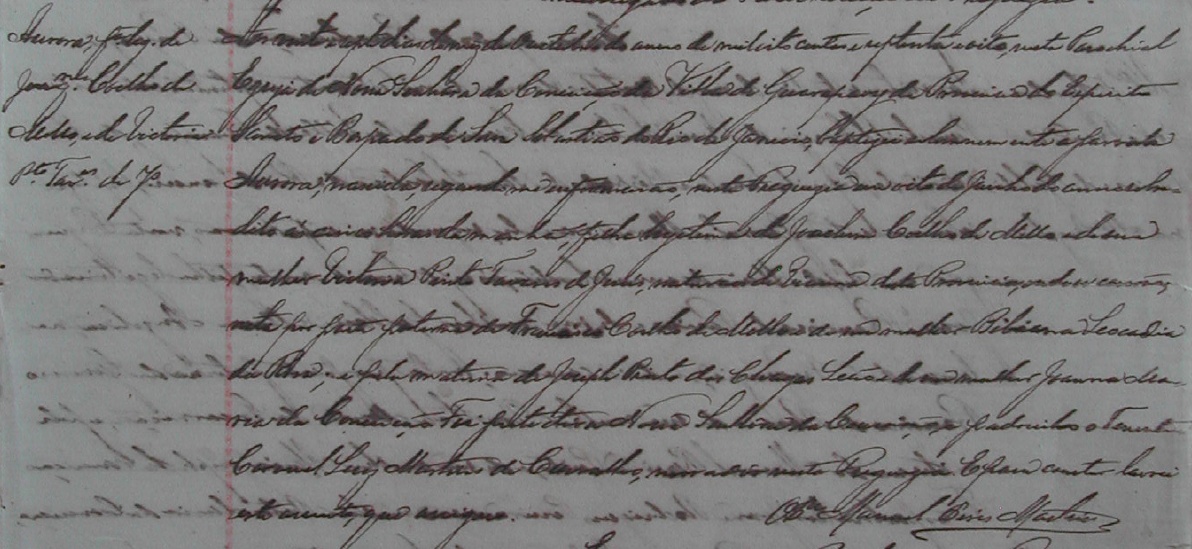 Freguezia.
Aurora, f. leg. de
Joaq.m Coelho de
Mello, e de Victoria
P.to Tav.es de J.
Aos vinte e sete dias do mez de Outubro do anno de mil oito centos e septenta e oito, nesta Parochial
Egreja de Nossa Senhora da Conceição da Villa de Guarapary da Provincia do Espirito
Santo e Bispado de São Sebastião do Rio de Janeiro, baptizei solemnemente a parvula
Aurora, nascida, segundo me informarão, nesta Freguezia aos oito de Junho do anno sobre-
dito ás cinco horas da manhã, filha legitima de Joachim Coelho de Mello e de sua
mulher Victoria Pinto Tavares de Jesus, naturaes de Vianna desta Provincia, onde se casarão,
neta por parte paterna de Francisco Coelho de Mello e de sua mulher Bibianna Leocadia
da Roza, e pela materna de Joseph Pinto das Chagas Leão e de sua mulher Joanna Ma-
ria da Conceição. Foi protectora Nossa Senhora da Conceição, e padrinho o Tenente
Coronel Luiz Martins de Carvalho, morador nesta Freguezia. E para constar lavrei
este assento, que assigno.
Manoel Pires Martins